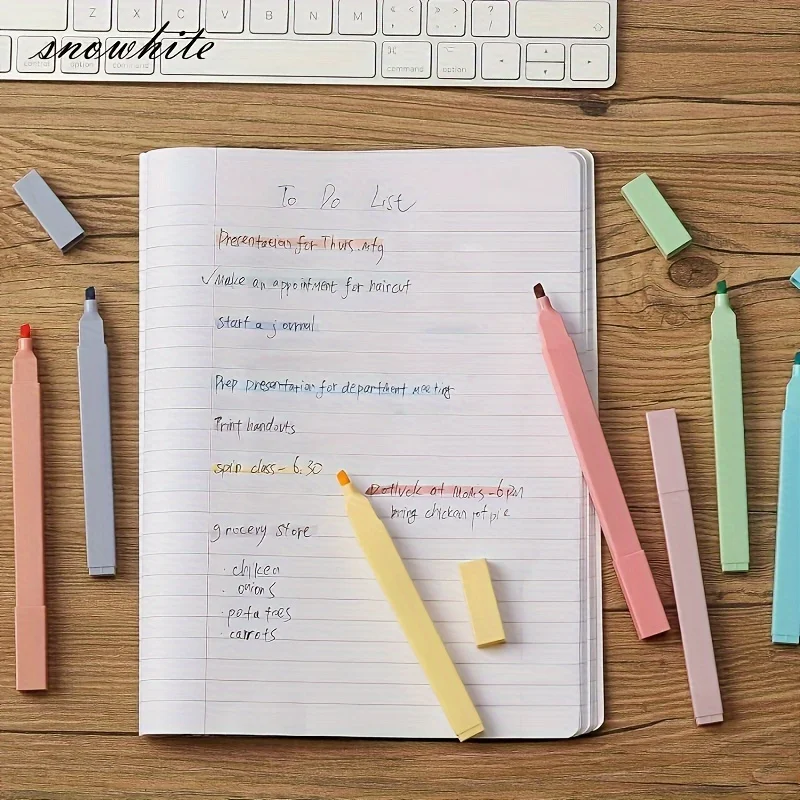 Z X C V B N M < > ?
snowhite
control option command command option
To Do List
Presentation for Thurs. mtg
✓Make an appointment for haircut
Start a journal
Prep presentation for department meeting
Print handouts
spin class - 6:30
Potluck at Mom's - 6pm
bring chicken pot pie
grocery store
· chiken
· onions
· potatoes
· carrots